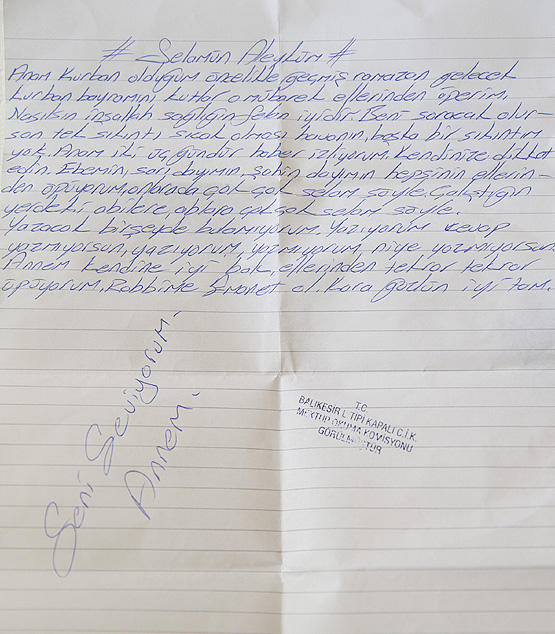 # Selamün Aleyküm #
Anam Kurban olduğum öncelikle geçmiş ramazan gelecek
kurban bayramını kutlar o mübarek ellerinden öperim.
Nasılsın inşallah sağlığın felan iyidir. Beni soracak olur-
san tek sıkıntı sıcak olması havanın, başka bir sıkıntım
yok. Anam iki üç gündür haber izliyorum. Kendinize dikkat
edin. Ebemin, sarı dayımın, şahin dayımın hepsinin ellerin-
den öpüyorum, onlarada çok çok selam söyle. Çalıştığın
yerdeki abilere, ablara çok çok selam söyle.
Yazacak birşeyde bulamıyorum. Yazıyorum cevap
yazmıyorsun, yazıyorum, yazmıyorum niye yazmıyorsun
Annem kendine iyi bak, ellerinden tekrar tekrar
öpüyorum. Rabbime Emanet ol. Kara gözlün iyi tam.
Seni Seviyorum.
Annem.
T.C.
BALIKESİR L TİPİ KAPALI C.İ.K.
MEKTUP OKUMA KOMİSYONU
GÖRÜLMÜŞTÜR